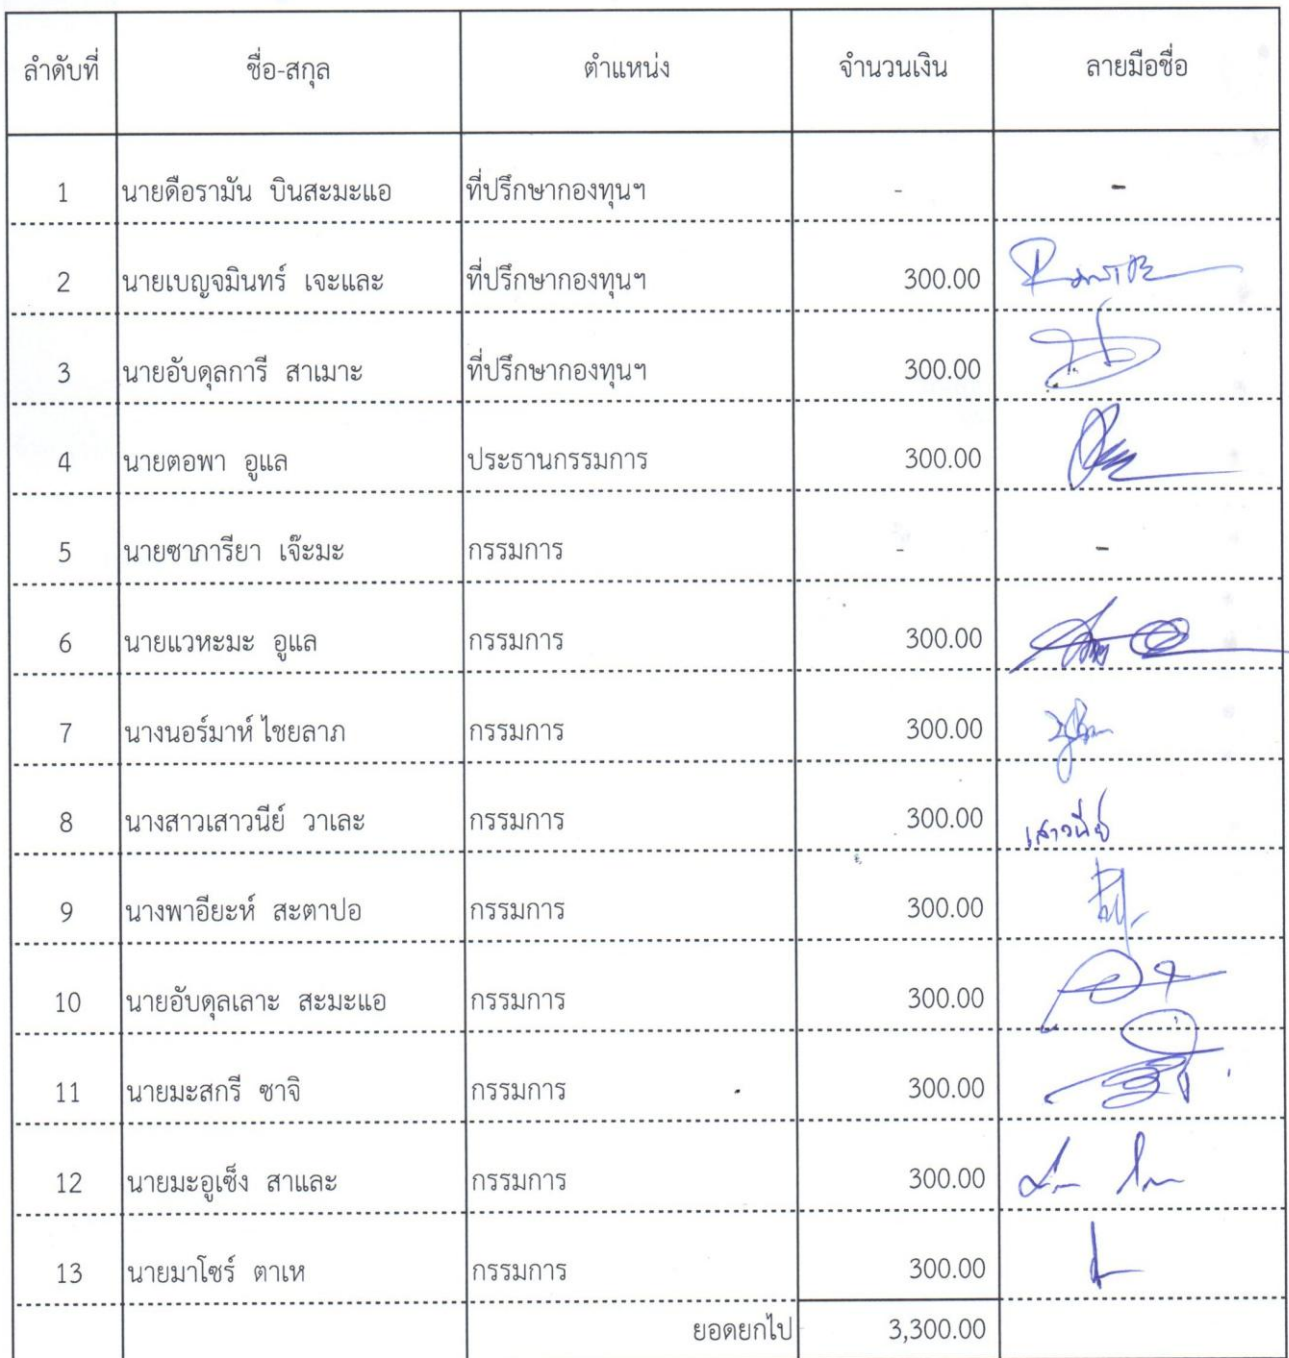 ลำดับที่ ชื่อ-สกุล ตำแหน่ง จำนวนเงิน ลายมือชื่อ
1 นายดือรามัน บินสะมะแอ ที่ปรึกษากองทุนฯ - -
2 นายเบญจมินทร์ เจะและ ที่ปรึกษากองทุนฯ 300.00
3 นายอับดุลการี สาเมาะ ที่ปรึกษากองทุนฯ 300.00
4 นายตอพา อูแล ประธานกรรมการ 300.00
5 นายซาการียา เจ๊ะมะ กรรมการ - -
6 นายแวหะมะ อูแล กรรมการ 300.00
7 นางนอร์มาห์ ไชยลาภ กรรมการ 300.00
8 นางสาวเสาวนีย์ วาเละ กรรมการ 300.00 เสาวนีย์
9 นางพาอียะห์ สะตาปอ กรรมการ 300.00
10 นายอับดุลเลาะ สะมะแอ กรรมการ 300.00
11 นายมะสกรี ซาจิ กรรมการ 300.00
12 นายมะอูเซ็ง สาและ กรรมการ 300.00
13 นายมาโซร์ ตาเห กรรมการ 300.00
ยอดยกไป 3,300.00